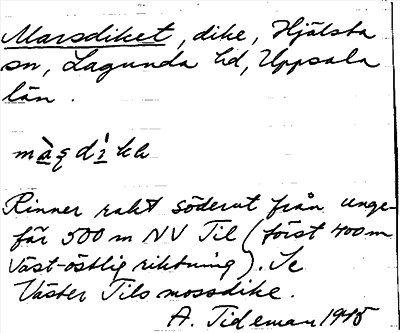 Marsdiket, dike, Hjälsta
sn, Lagunda hd, Uppsala
län.
Rinner rakt söderut från unge-
fär 500 m NV Til (först 400 m
väst-östlig riktning). Se
Väster Tils mossdike.
A. Tideman 1945